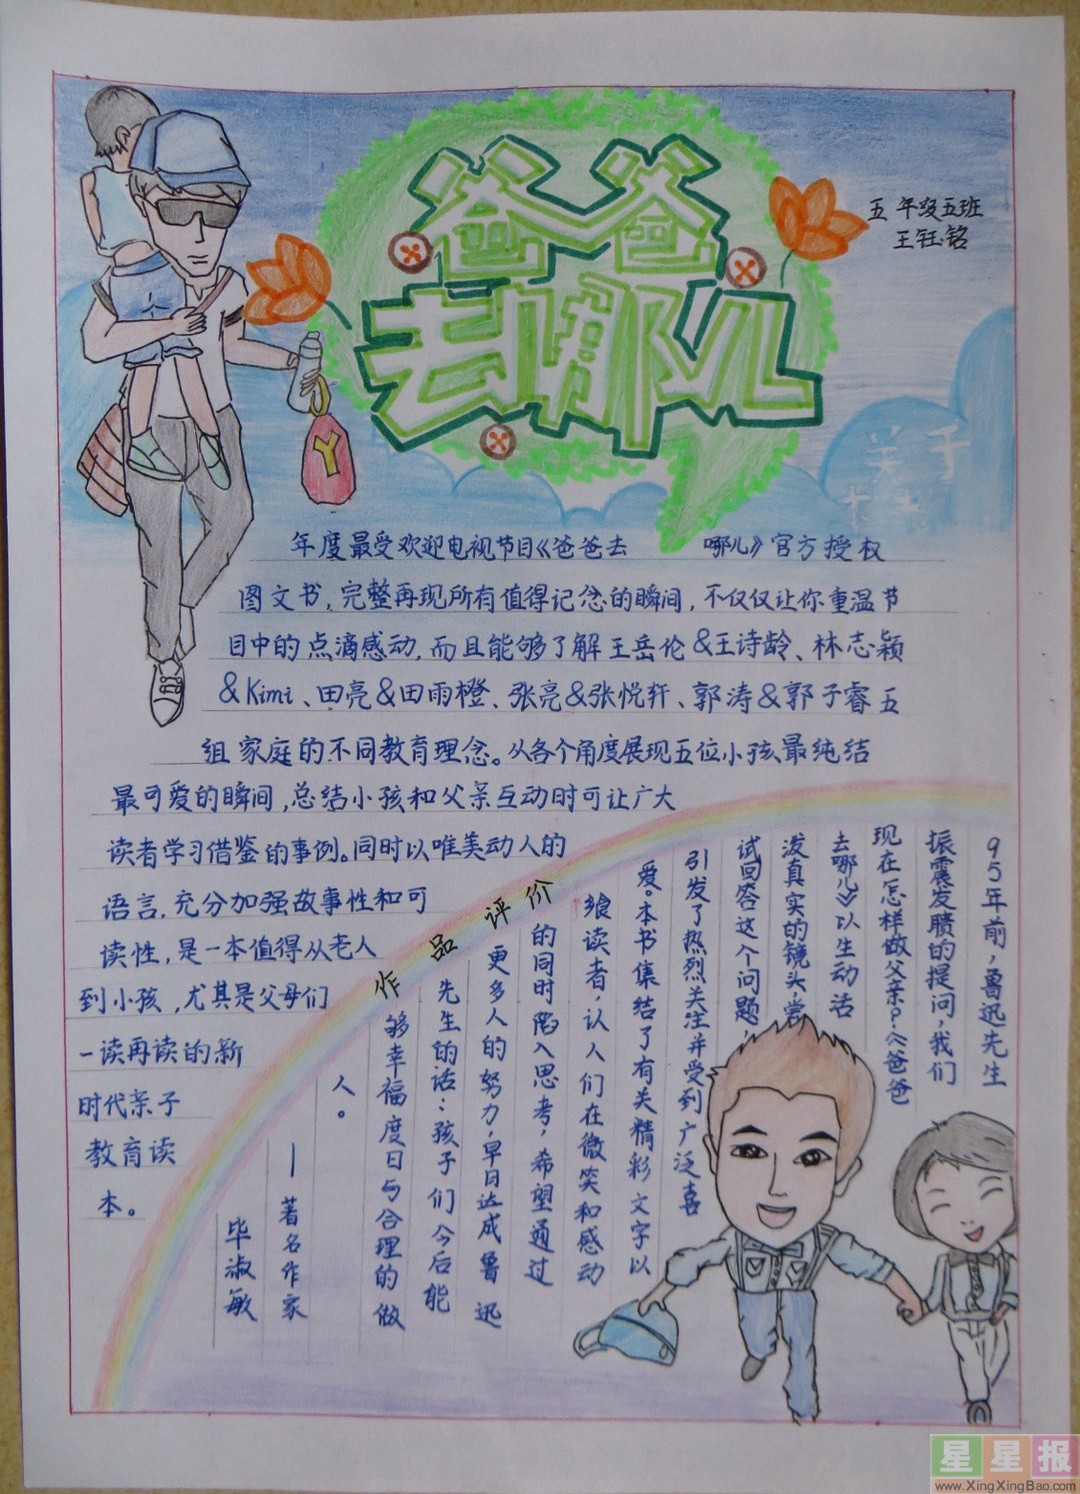 爸爸
去哪儿
五年级五班
王钰铭
关于
年度最受欢迎电视节目《爸爸去哪儿》官方授权
图文书,完整再现所有值得记念的瞬间,不仅仅让你重温节
目中的点滴感动,而且能够了解王岳伦&王诗龄、林志颖
&Kimi、田亮&田雨橙、张亮&张悦轩、郭涛&郭子睿五
组家庭的不同教育理念。从各个角度展现五位小孩最纯结
最可爱的瞬间,总结小孩和父亲互动时可让广大
读者学习借鉴的事例。同时以唯美动人的
语言,充分加强故事性和可
读性,是一本值得从老人
到小孩,尤其是父母们
一读再读的新
时代亲子
教育读
本。
作品评价
95年前,鲁迅先生
振震发聩的提问,我们
现在怎样做父亲?《爸爸
去哪儿》以生动活
泼真实的镜头,尝
试回答这个问题,
引发了热烈关注并受到广泛喜
爱。本书集结了有关精彩文字以
飨读者,认人们在微笑和感动
的同时陷入思考,希望通过
更多人的努力,早日达成鲁迅
先生的话:孩子们今后能
够幸福度日与合理的做
人。
—著名作家
毕淑敏
Y
星星报
www.XingXingBao.com